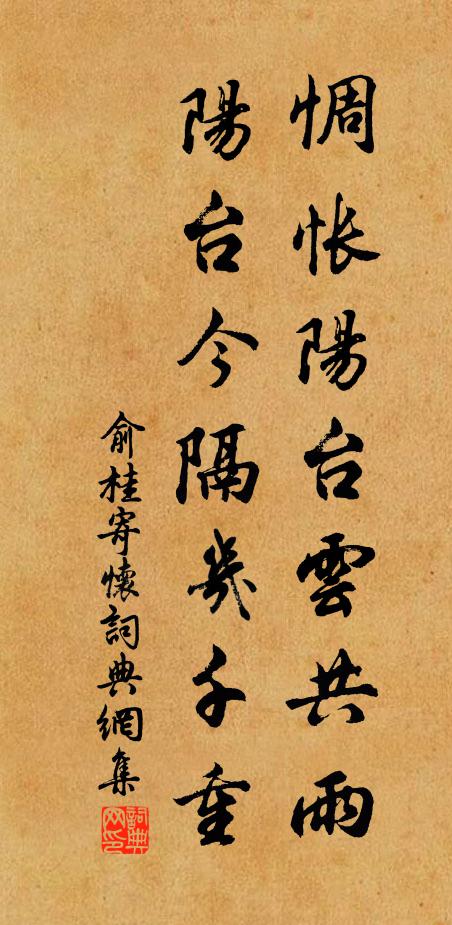 惆怅陽台雲共雨
陽台今隔幾千重
俞桂寄懷詞典網集
詞典網印